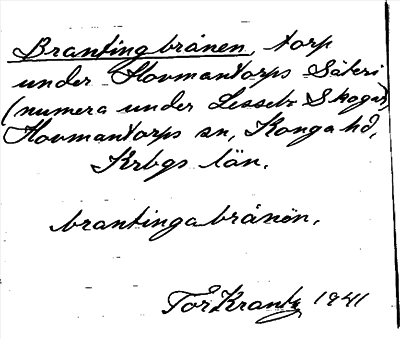 Brantingbrånen, torp
under Hovmantorps Säteri
(numera under Lessebo Skogar)
Hovmantorps sn, Konga hd,
Krbgs län.
brantingabrånön.
Tor Krantz 1941